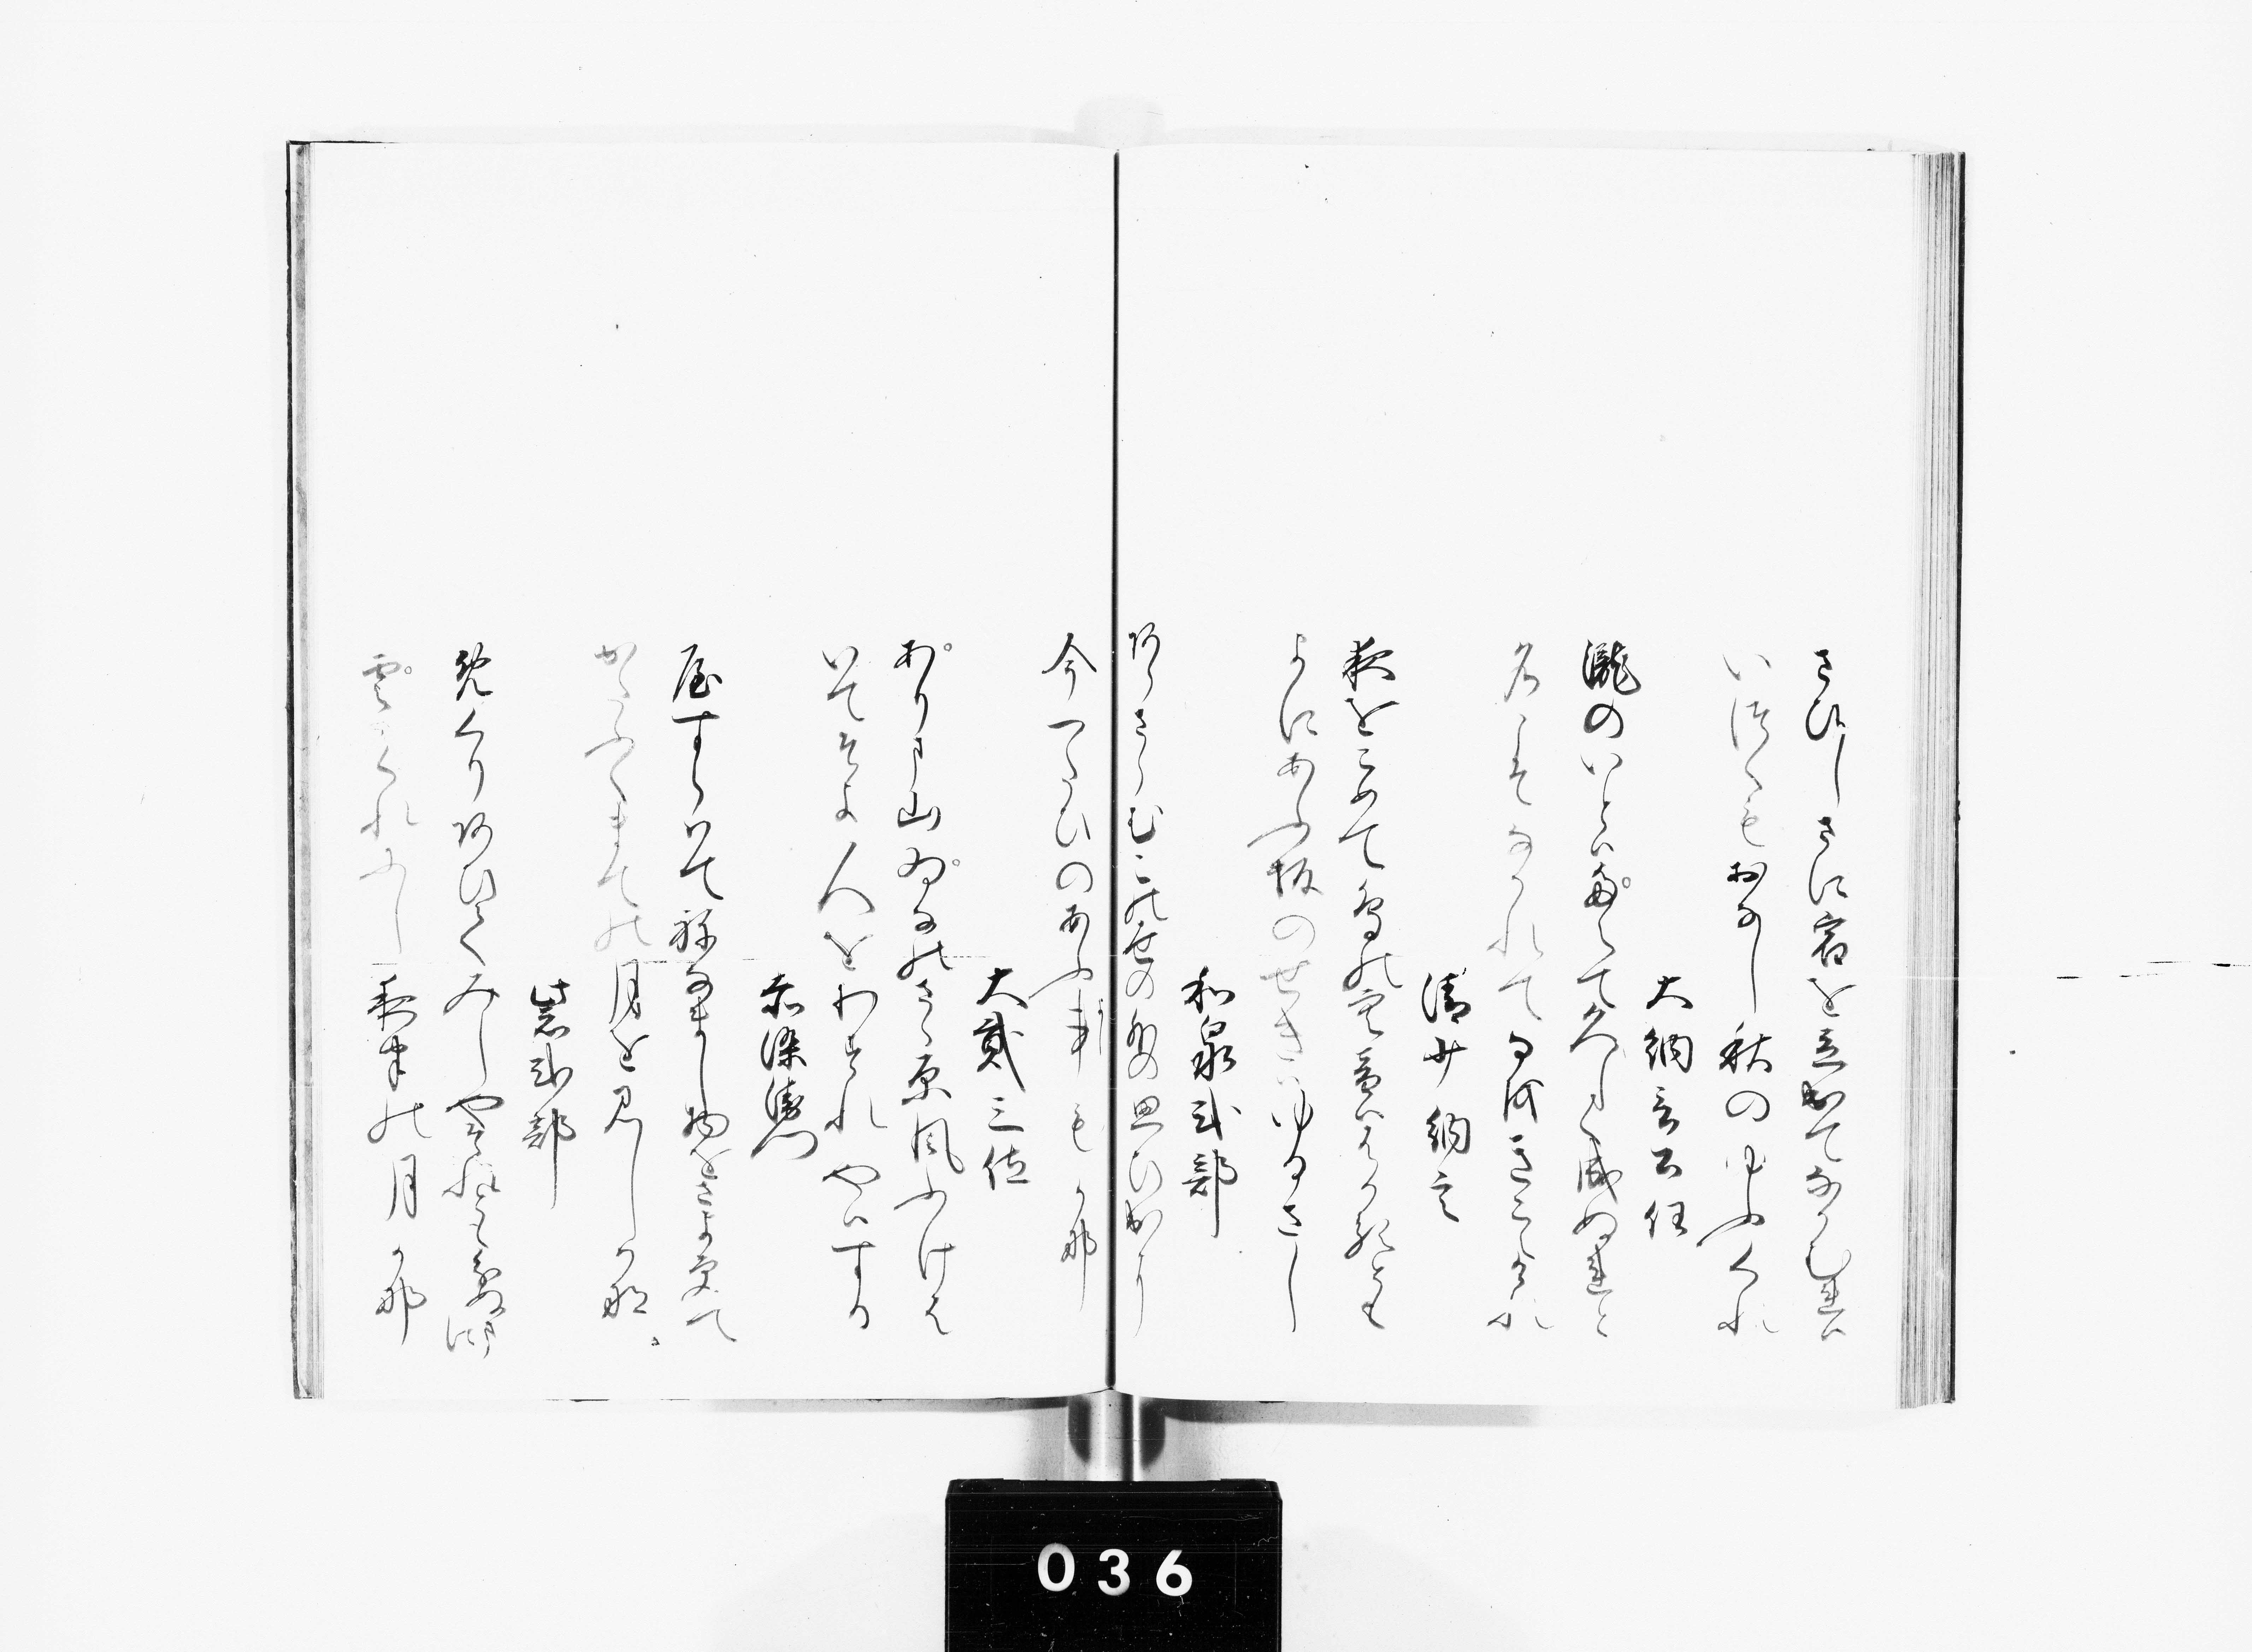 さひしさに宿を立出てなかむれは
いつくもおなし秋のゆふくれ
大納言公任
瀧のいとは多えて久しく成ぬれと
名こそなかれて猶きこえけれ
清少納言
夜をこめて鳥のそら音ははかるとも
よにあふ坂のせきはゆるさし
和泉式部
阿らさらむこの世の外の思ひ出に
今一たひのあふ事もか那
大貳三位
ありま山ゐなのさゝ原風ふけは
いてそよ人をわすれやはする
赤染衛門
屋すらはて祢なまし物をさよ更て
かたふくまての月を見しか那
紫式部
免くり阿ひてみしやそれともわかぬ間に
雲かくれにし夜半の月か那
036